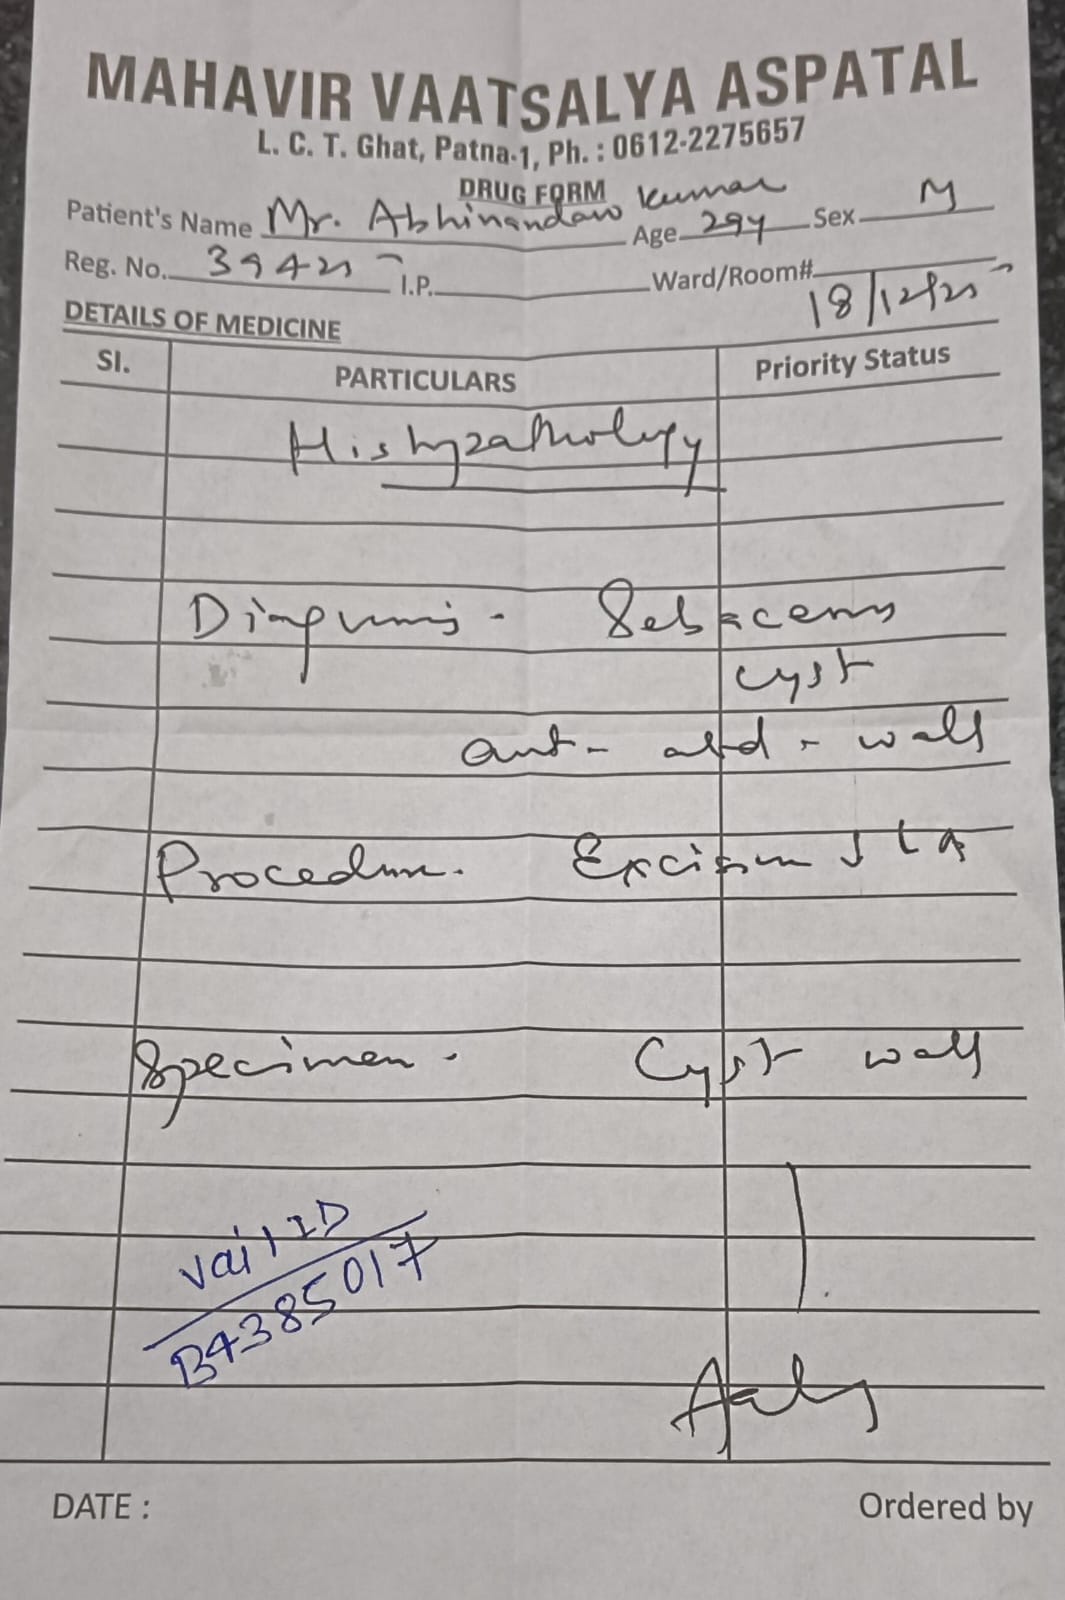 MAHAVIR VAATSALYA ASPATAL
L. C. T. Ghat, Patna-1, Ph. : 0612-2275657
DRUG FORM
Patient's Name Mr. Abhinandan Kumar Age 29y Sex M
Reg. No. I.P. Ward/Room#
18/12/25
DETAILS OF MEDICINE
Sl. PARTICULARS Priority Status
Histopathology
Diagnosis - Sebaceous
cyst
ant - abd - wall
Procedure. Excision LA
Specimen - Cyst wall
vail ID
B4385017
DATE : Ordered by